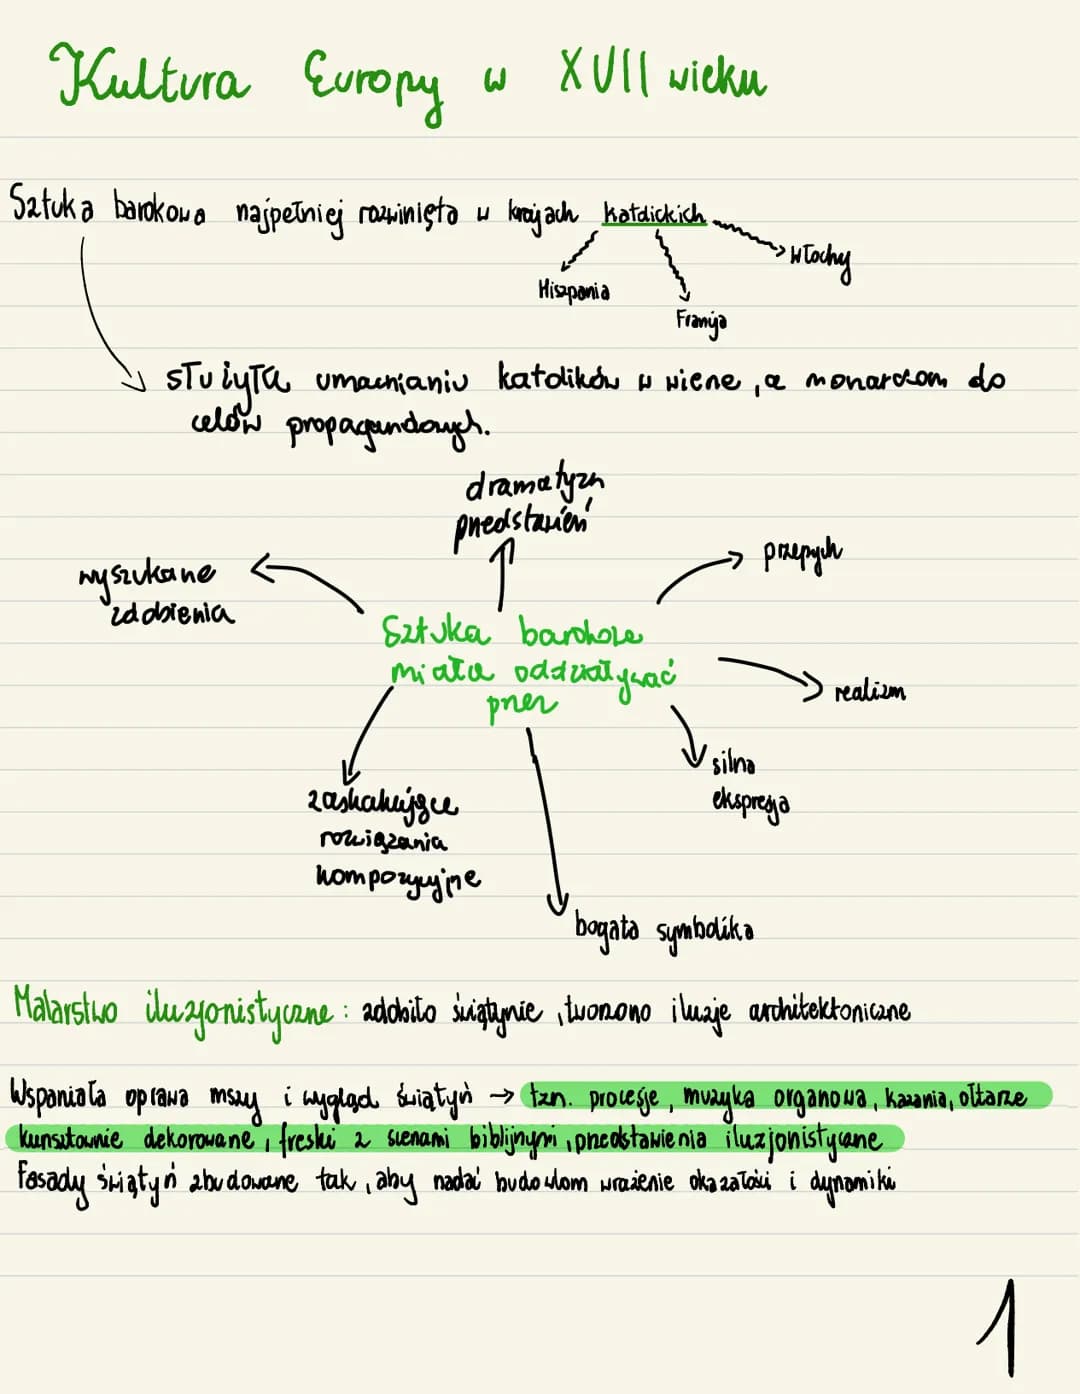 Kultura Europy w XVII wieku
Sztuka barokowa najpełniej rozwinięta w krajach katolickich
Włochy
Hiszpania
Francja
służyła umacnianiu katolików w wierze, a monarchom do
celów propagandowych.
dramatyzm
przedstawień
przepych
wyszukane
zdobienia
Sztuka barokowa
miała oddziaływać
przez
realizm
silna
ekspresja
zaskakujące
rozwiązania
kompozycyjne
bogata symbolika
Malarstwo iluzjonistyczne: zdobiło świątynie, tworzono iluzje architektoniczne
Wspaniała oprawa mszy i wygląd świątyń → tzn. procesje, muzyka organowa, kazania, ołtarze
kunsztownie dekorowane, freski z scenami biblijnymi, przedstawienia iluzjonistyczne
Fasady świątyń zbudowane tak, aby nadać budowlom wrażenie okazałości i dynamiki
1